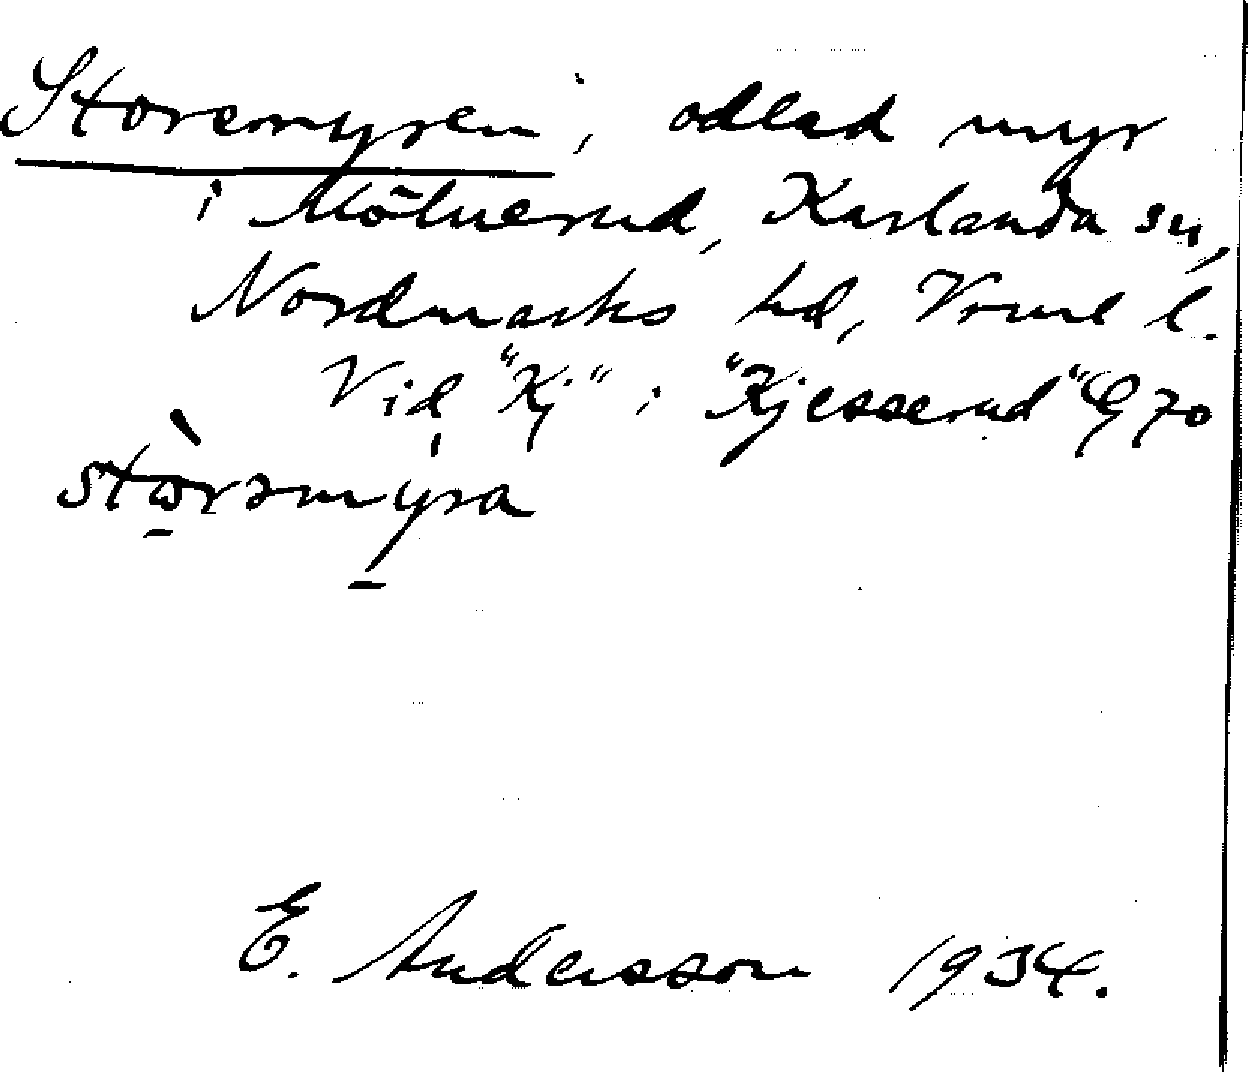 Storemyren, odlad myr
i Mölnerud, Karlanda sn,
Nordmarks hd, Vrml l.
Vid "Kj" i "Kjesserud" G 70
stò̱rəmy̱ra
E. Andersson 1934.